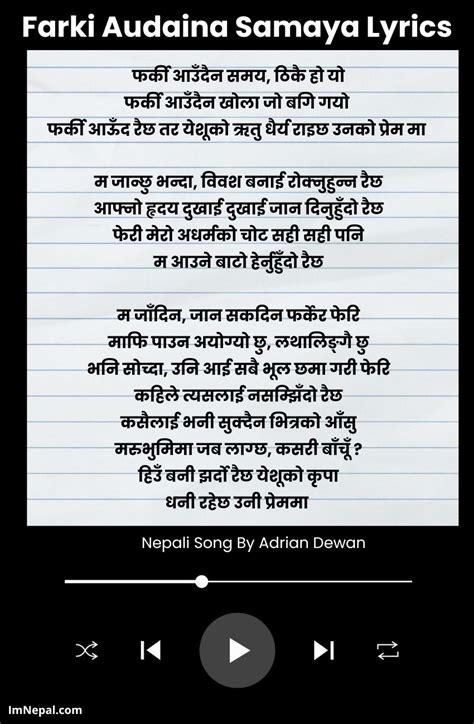 Farki Audaina Samaya Lyrics
फर्की आउँदैन समय, ठिकै हो यो
फर्की आउँदैन खोला जो बगि गयो
फर्की आऊँद रैछ तर येशूको ऋतु धैर्य राइछ उनको प्रेम मा
म जान्छु भन्दा, विवश बनाई रोक्नुहुन्न रैछ
आफ्नो हृदय दुखाई दुखाई जान दिनुहुँदो रैछ
फेरी मेरो अधर्मको चोट सही सही पनि
म आउने बाटो हेर्नुहुँदो रैछ
म जाँदिन, जान सकदिन फर्केर फेरि
माफि पाउन अयोग्यो छु, लथालिङ्गै छु
भनि सोच्दा, उनि आई सबै भूल छमा गरी फेरि
कहिले त्यसलाई नसम्झिँदो रैछ
कसैलाई भनी सुक्दैन भित्रको आँसु
मरुभुमिमा जब लाग्छ, कसरी बाँचूँ ?
हिउँ बनी झर्दो रैछ येशूको कृपा
धनी रहेछ उनी प्रेममा
Nepali Song By Adrian Dewan
ImNepal.com